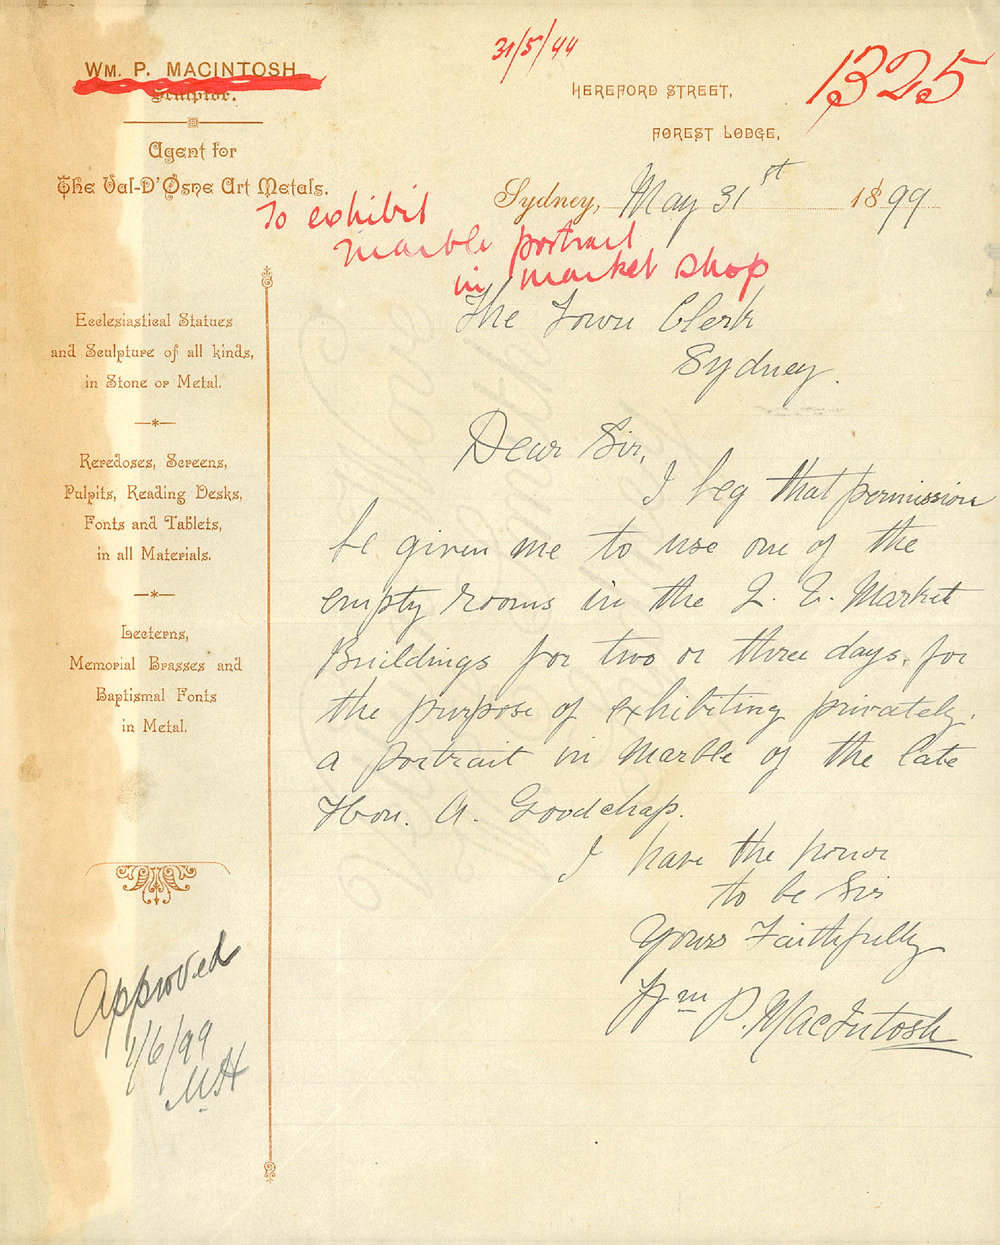 31/5/99
1325
WM. P. MACINTOSH
Sculptor.
Agent for
The Val-D'Osne Art Metals.
HEREFORD STREET,
FOREST LODGE,
Sydney, May 31st 1899
To exhibit
marble portrait
in market shop
Ecclesiastical Statues
and Sculpture of all kinds,
in Stone or Metal.
Reredoses, Screens,
Pulpits, Reading Desks,
Fonts and Tablets,
in all Materials.
Lecterns,
Memorial Brasses and
Baptismal Fonts
in Metal.
The Town Clerk
Sydney.
Dear Sir,
I beg that permission
be given me to use one of the
empty rooms in the Q. V. Market
Buildings for two or three days, for
the purpose of exhibiting privately.
a portrait in Marble of the late
Hon. A. Goodchap.
I have the honor
to be Sir
Yours Faithfully
Wm P. MacIntosh
Approved
1/6/99